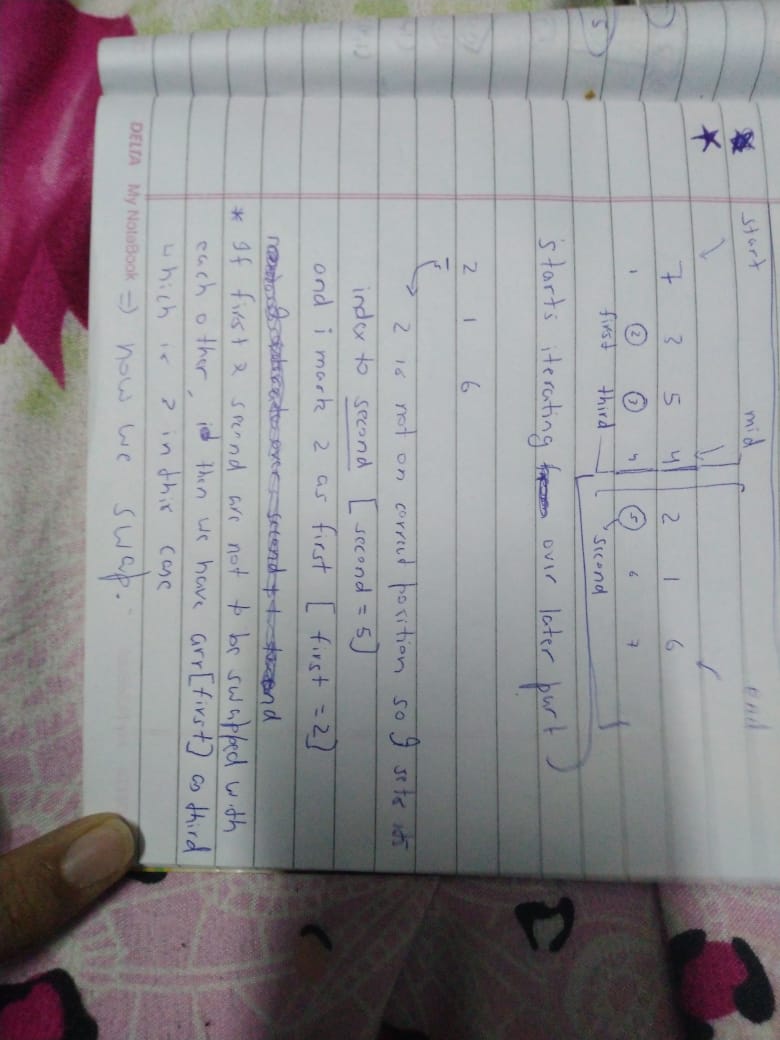 start mid end
7 3 5 4 2 1 6
1 2 3 4 5 6 7
first third second
starts iterating over later part)
2 1 6
5
2 is not on correct position so I sets its
index to second [second = 5]
and i mark 2 as first [first = 2]
* If first & second are not to be swapped with
each other, then we have arr[first] as third
which is 2 in this case
=) now we swap.
DELTA My NoteBook
5